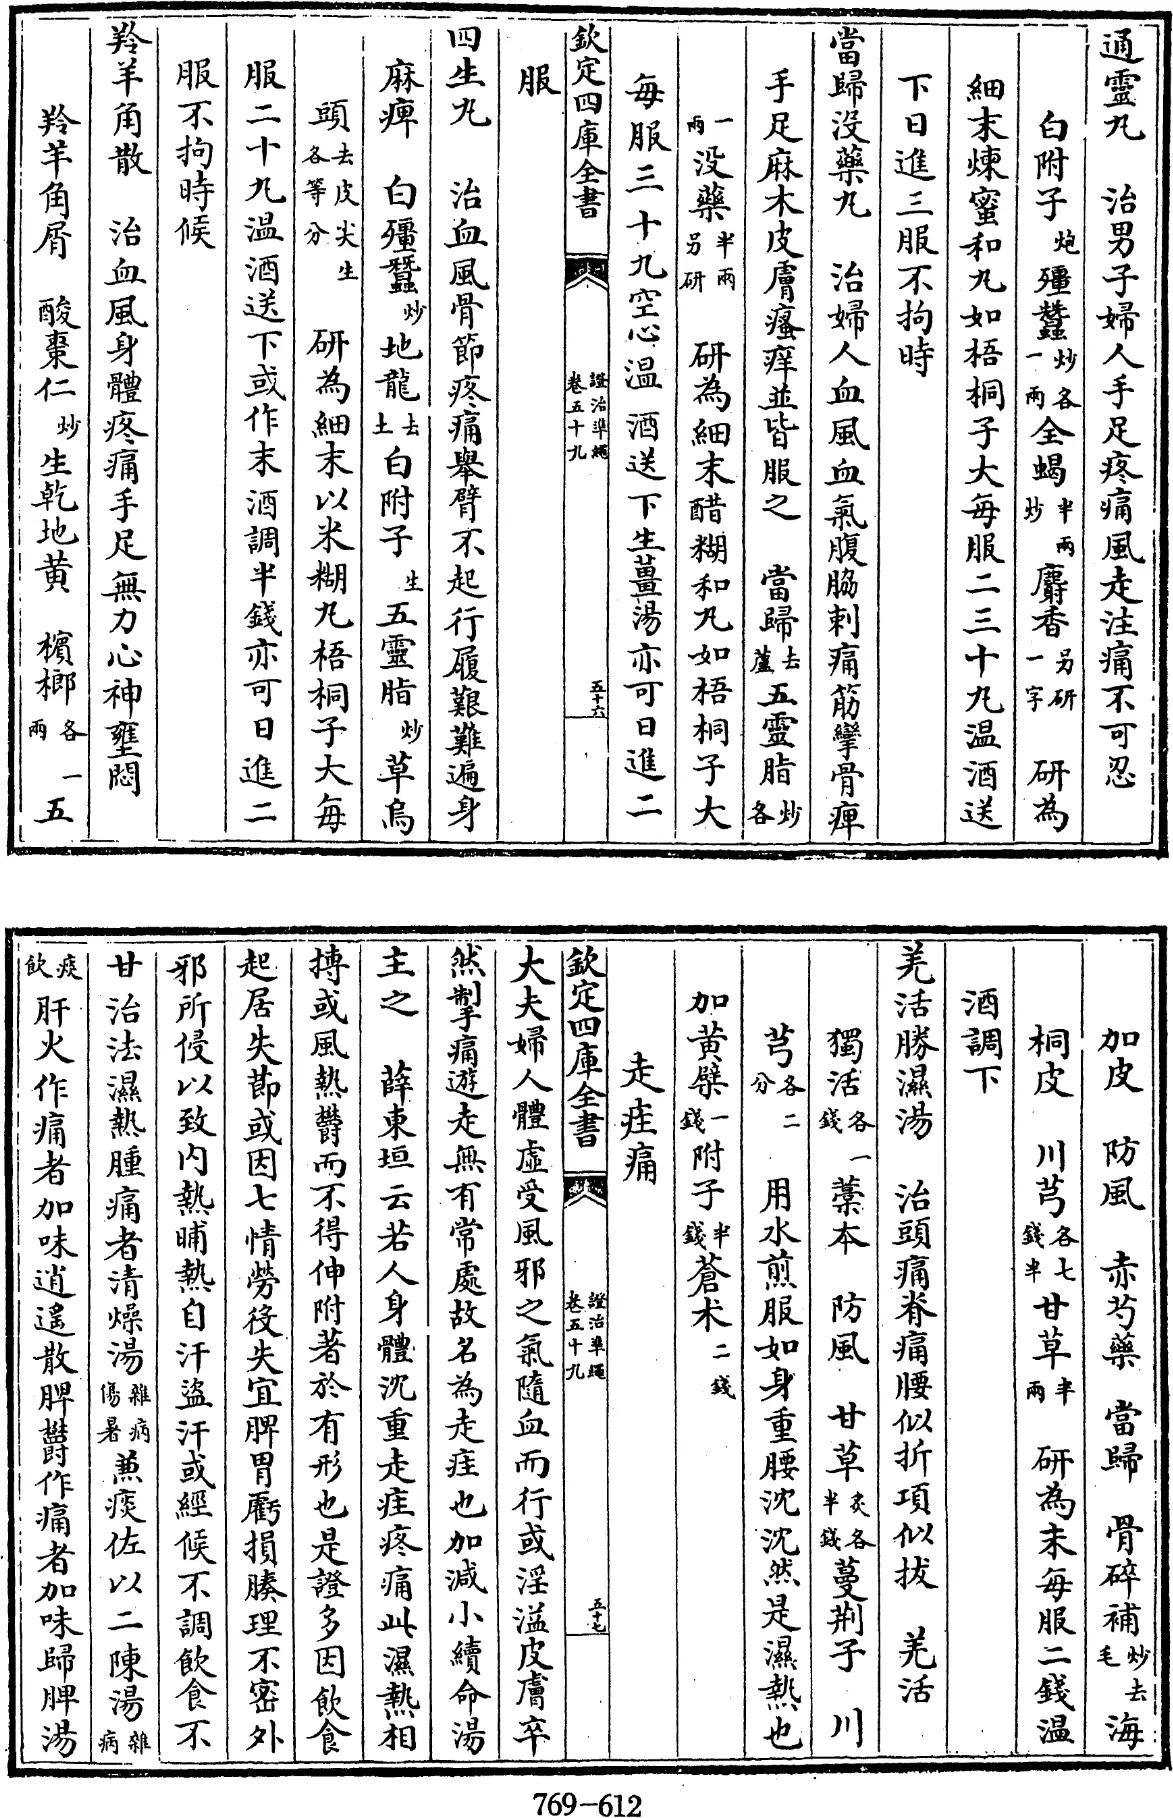 通靈丸　治男子婦人手足疼痛風走注痛不可忍
白附子炮殭蠶炒各一兩全蝎半兩炒麝香另研一字　研為
細末煉蜜和丸如梧桐子大每服二三十丸温酒送
下日進三服不拘時
當歸沒藥丸　治婦人血風血氣腹脇刺痛筋攣骨痺
手足麻木皮膚瘙痒並皆服之　當歸去蘆五靈脂炒各
一兩沒藥半兩另研　研為細末醋糊和丸如梧桐子大
每服三十丸空心温酒送下生薑湯亦可日進二
欽定四庫全書　證治準繩卷五十九　五十六
服
四生丸　治血風骨節疼痛舉臂不起行履艱難遍身
麻痺　白殭蠶炒地龍去土白附子生五靈脂炒草烏
頭去皮尖生各等分　研為細末以米糊丸梧桐子大每
服二十丸温酒送下或作末酒調半錢亦可日進二
服不拘時候
羚羊角散　治血風身體疼痛手足無力心神壅悶
羚羊角屑　酸棗仁炒生乾地黄　檳榔各一兩　五
加皮　防風　赤芍藥　當歸　骨碎補炒去毛海
桐皮　川芎各七錢半甘草半兩　研為末每服二錢温
酒調下
羌活勝濕湯　治頭痛脊痛腰似折項似拔　羌活
獨活各一錢藁本　防風　甘草炙各半錢蔓荆子　川
芎各二分　用水煎服如身重腰沈沈然是濕熱也
加黄檗一錢附子半錢蒼朮二錢
走疰痛
欽定四庫全書　證治準繩卷五十九　五十七
大夫婦人體虛受風邪之氣隨血而行或淫溢皮膚卒
然掣痛遊走無有常處故名為走疰也加減小續命湯
主之　薛東垣云若人身體沈重走疰疼痛此濕熱相
搏或風熱鬱而不得伸附著於有形也是證多因飲食
起居失節或因七情勞役失宜脾胃虧損腠理不密外
邪所侵以致内熱晡熱自汗盜汗或經候不調飲食不
甘治法濕熱腫痛者清燥湯雜病傷暑兼痰佐以二陳湯雜病
痰飲肝火作痛者加味逍遥散脾鬱作痛者加味歸脾湯
769-612